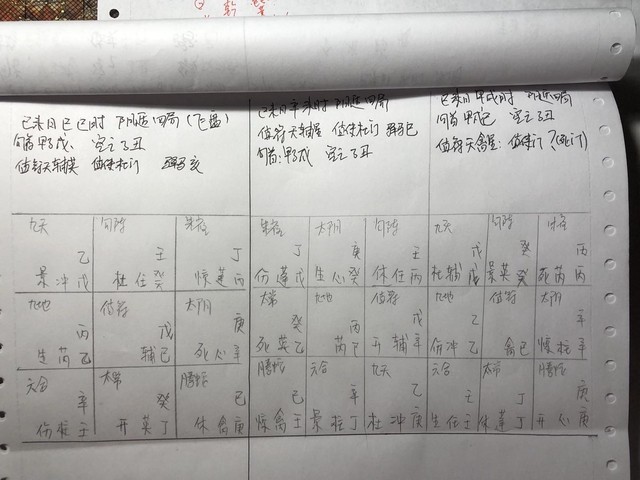 乾
己未日己巳时 阴遁四局(飞盘)
旬首甲子戊、 空亡戌亥
值符天辅 值使杜门
己未日辛未时 阴遁四局
值符天辅 值使杜门
旬首:甲子戊
己未日甲戌时 阴遁四局
旬首 甲戌己
值符天禽星: 值使门?(死门)
九天 勾陈 朱雀
乙 壬 丁
景冲戊 杜任癸 惊蓬丙
九地 值符 太阴
丙 戊 庚
生芮乙 辅己 死心辛
六合 太常 腾蛇
辛 癸 己
伤柱壬 开英丁 休禽庚
朱雀 太阴 勾陈
丁 庚 壬
伤蓬戊 生心癸 休任丙
太常 九地 值符
癸 丙 戊
死英乙 芮己 开辅辛
腾蛇 六合 九天
己 辛 乙
惊禽壬 景柱丁 杜冲庚
九天 勾陈 朱雀
戊 癸 丙
杜辅戊 景英癸 死芮丙
九地 值符 太阴
乙 辛
伤冲乙 禽己 惊柱辛
六合 太常 腾蛇
壬 丁 庚
生任壬 休蓬丁 开心庚